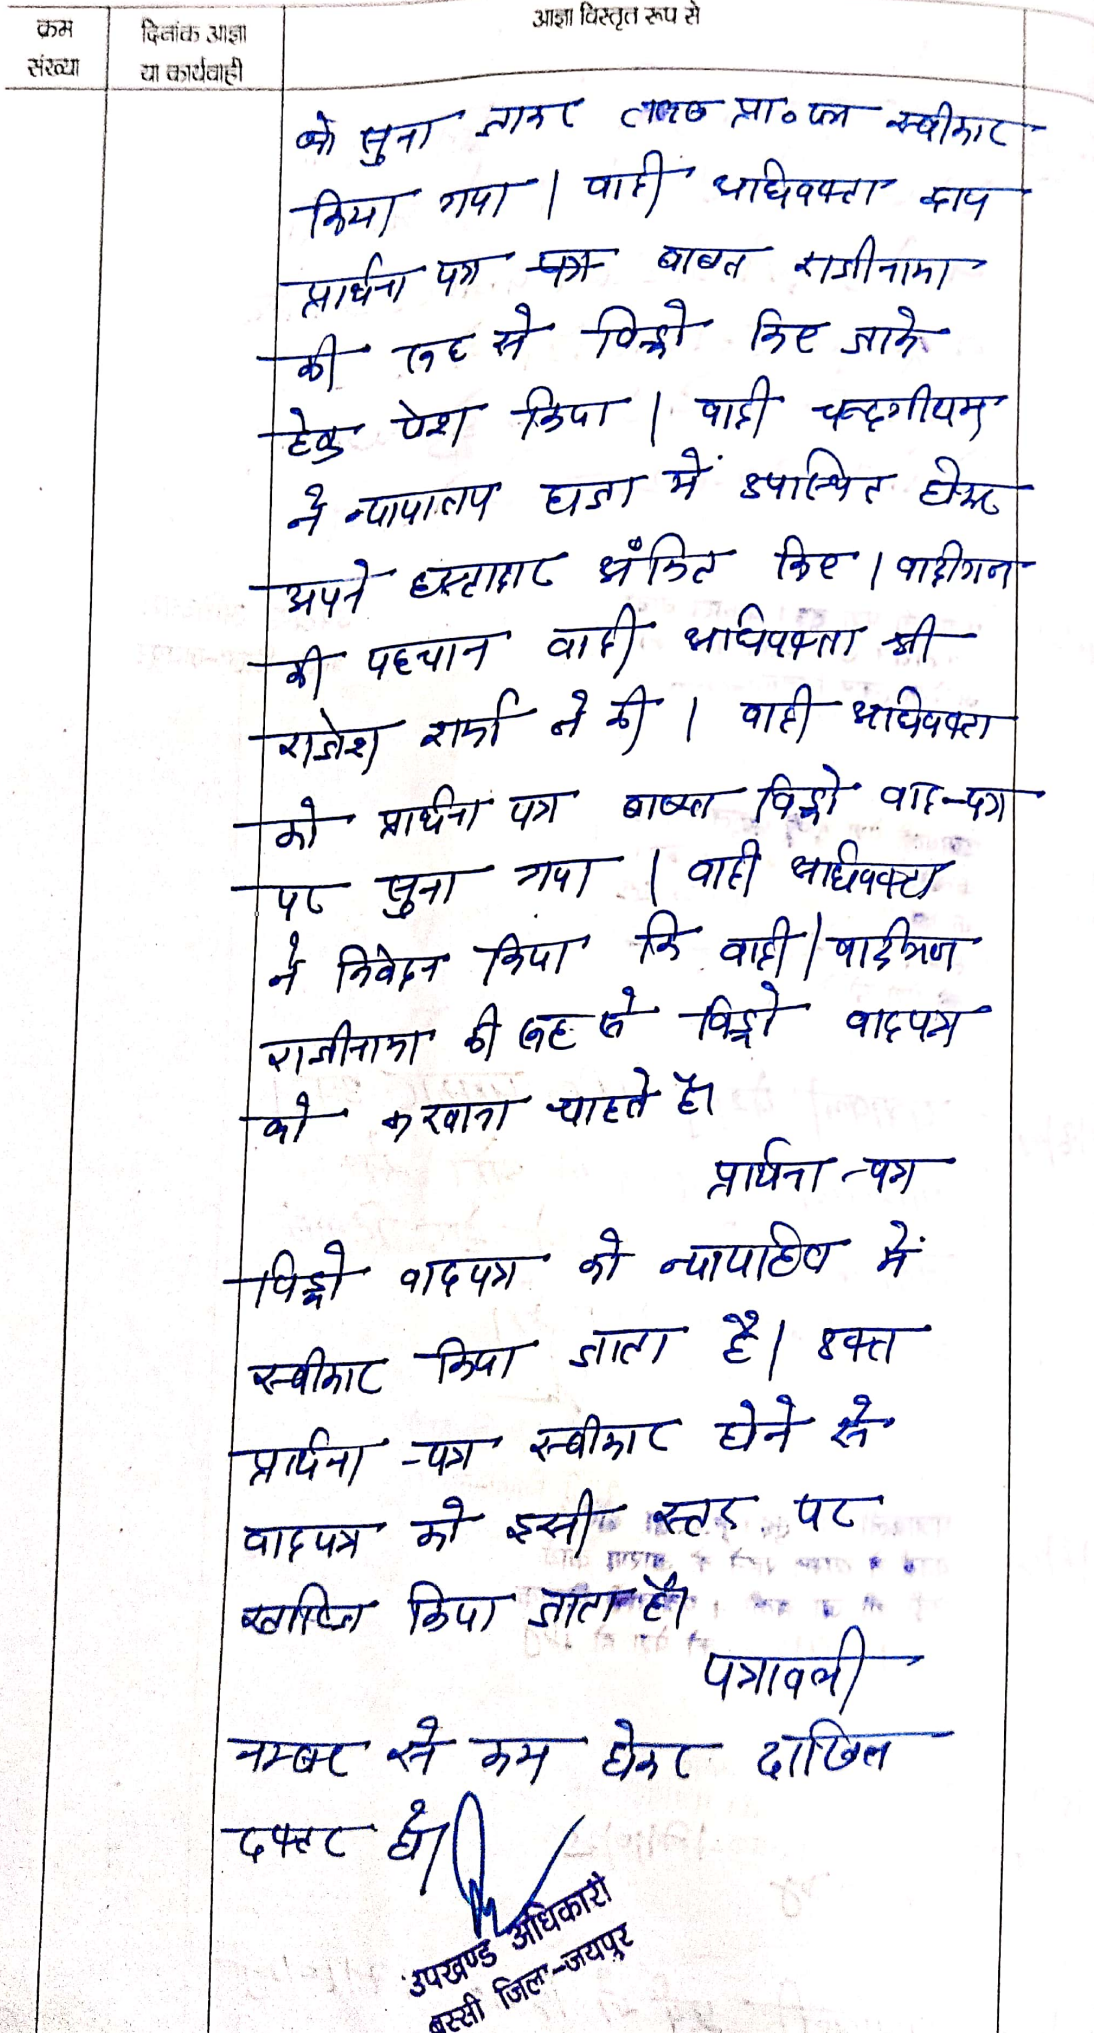 क्रम संख्या
दिनांक आज्ञा या कार्यवाही
आज्ञा विस्तृत रूप से
को सुना जाकर प्रा० पत्र स्वीकार
किया गया | वादी अधिवक्ता द्वारा
प्रार्थना पत्र बाबत राजीनामा
की रूह से विड्रो किए जाने
हेतु पेश किया | वादी
ने न्यायालय हाजा में उपस्थित होकर
अपने हस्ताक्षर अंकित किए | वादीगण
की पहचान वादी अधिवक्ता श्री
राजेश शर्मा ने की | वादी अधिवक्ता
को प्रार्थना पत्र बाबत विड्रो वाद-पत्र
पर सुना गया | वादी अधिवक्ता
ने निवेदन किया कि वादी/वादीगण
राजीनामा की रूह से विड्रो वादपत्र
को करवाना चाहते है।
प्रार्थना-पत्र
विड्रो वादपत्र को न्यायहित में
स्वीकार किया जाता है | उक्त
प्रार्थना-पत्र स्वीकार होने से
वादपत्र को इसी स्तर पर
खारिज किया जाता है।
पत्रावली
नम्बर से कम होकर दाखिल
दफ्तर हो।
उपखण्ड अधिकारी
बस्सी जिला-जयपुर